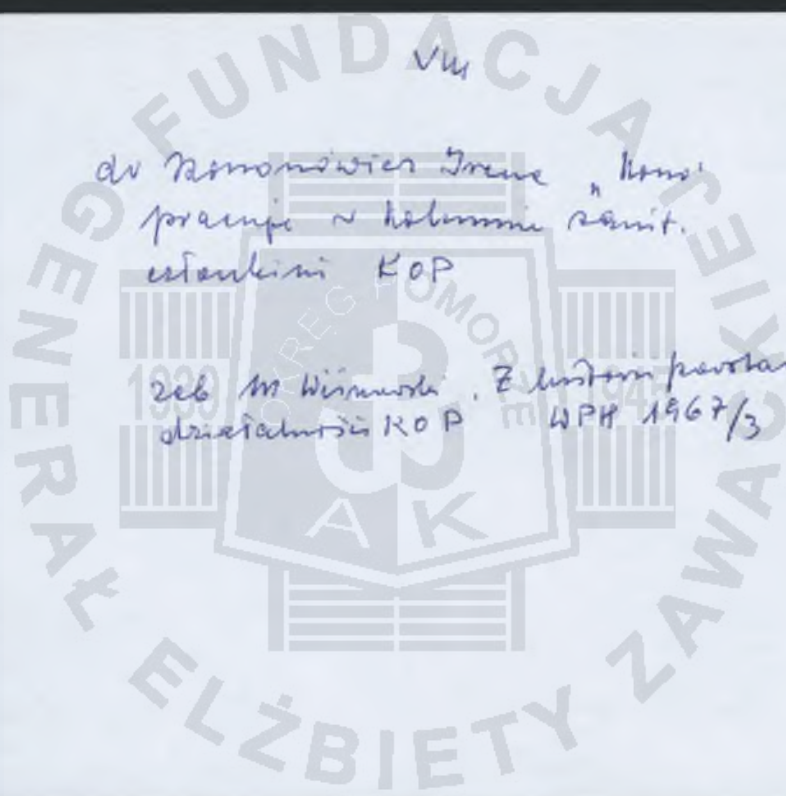 VIII
dr Kononowicz Irena „Kono"
pracuje w kolumnie sanit.
członkini KOP
zob M Wiśniewski. Z historii powsta
działalności KOP WPH 1967/3
FUNDACJA GENERAŁ ELŻBIETY ZAWACKIEJ
OKRĘG POMORZE
1939 194
AK